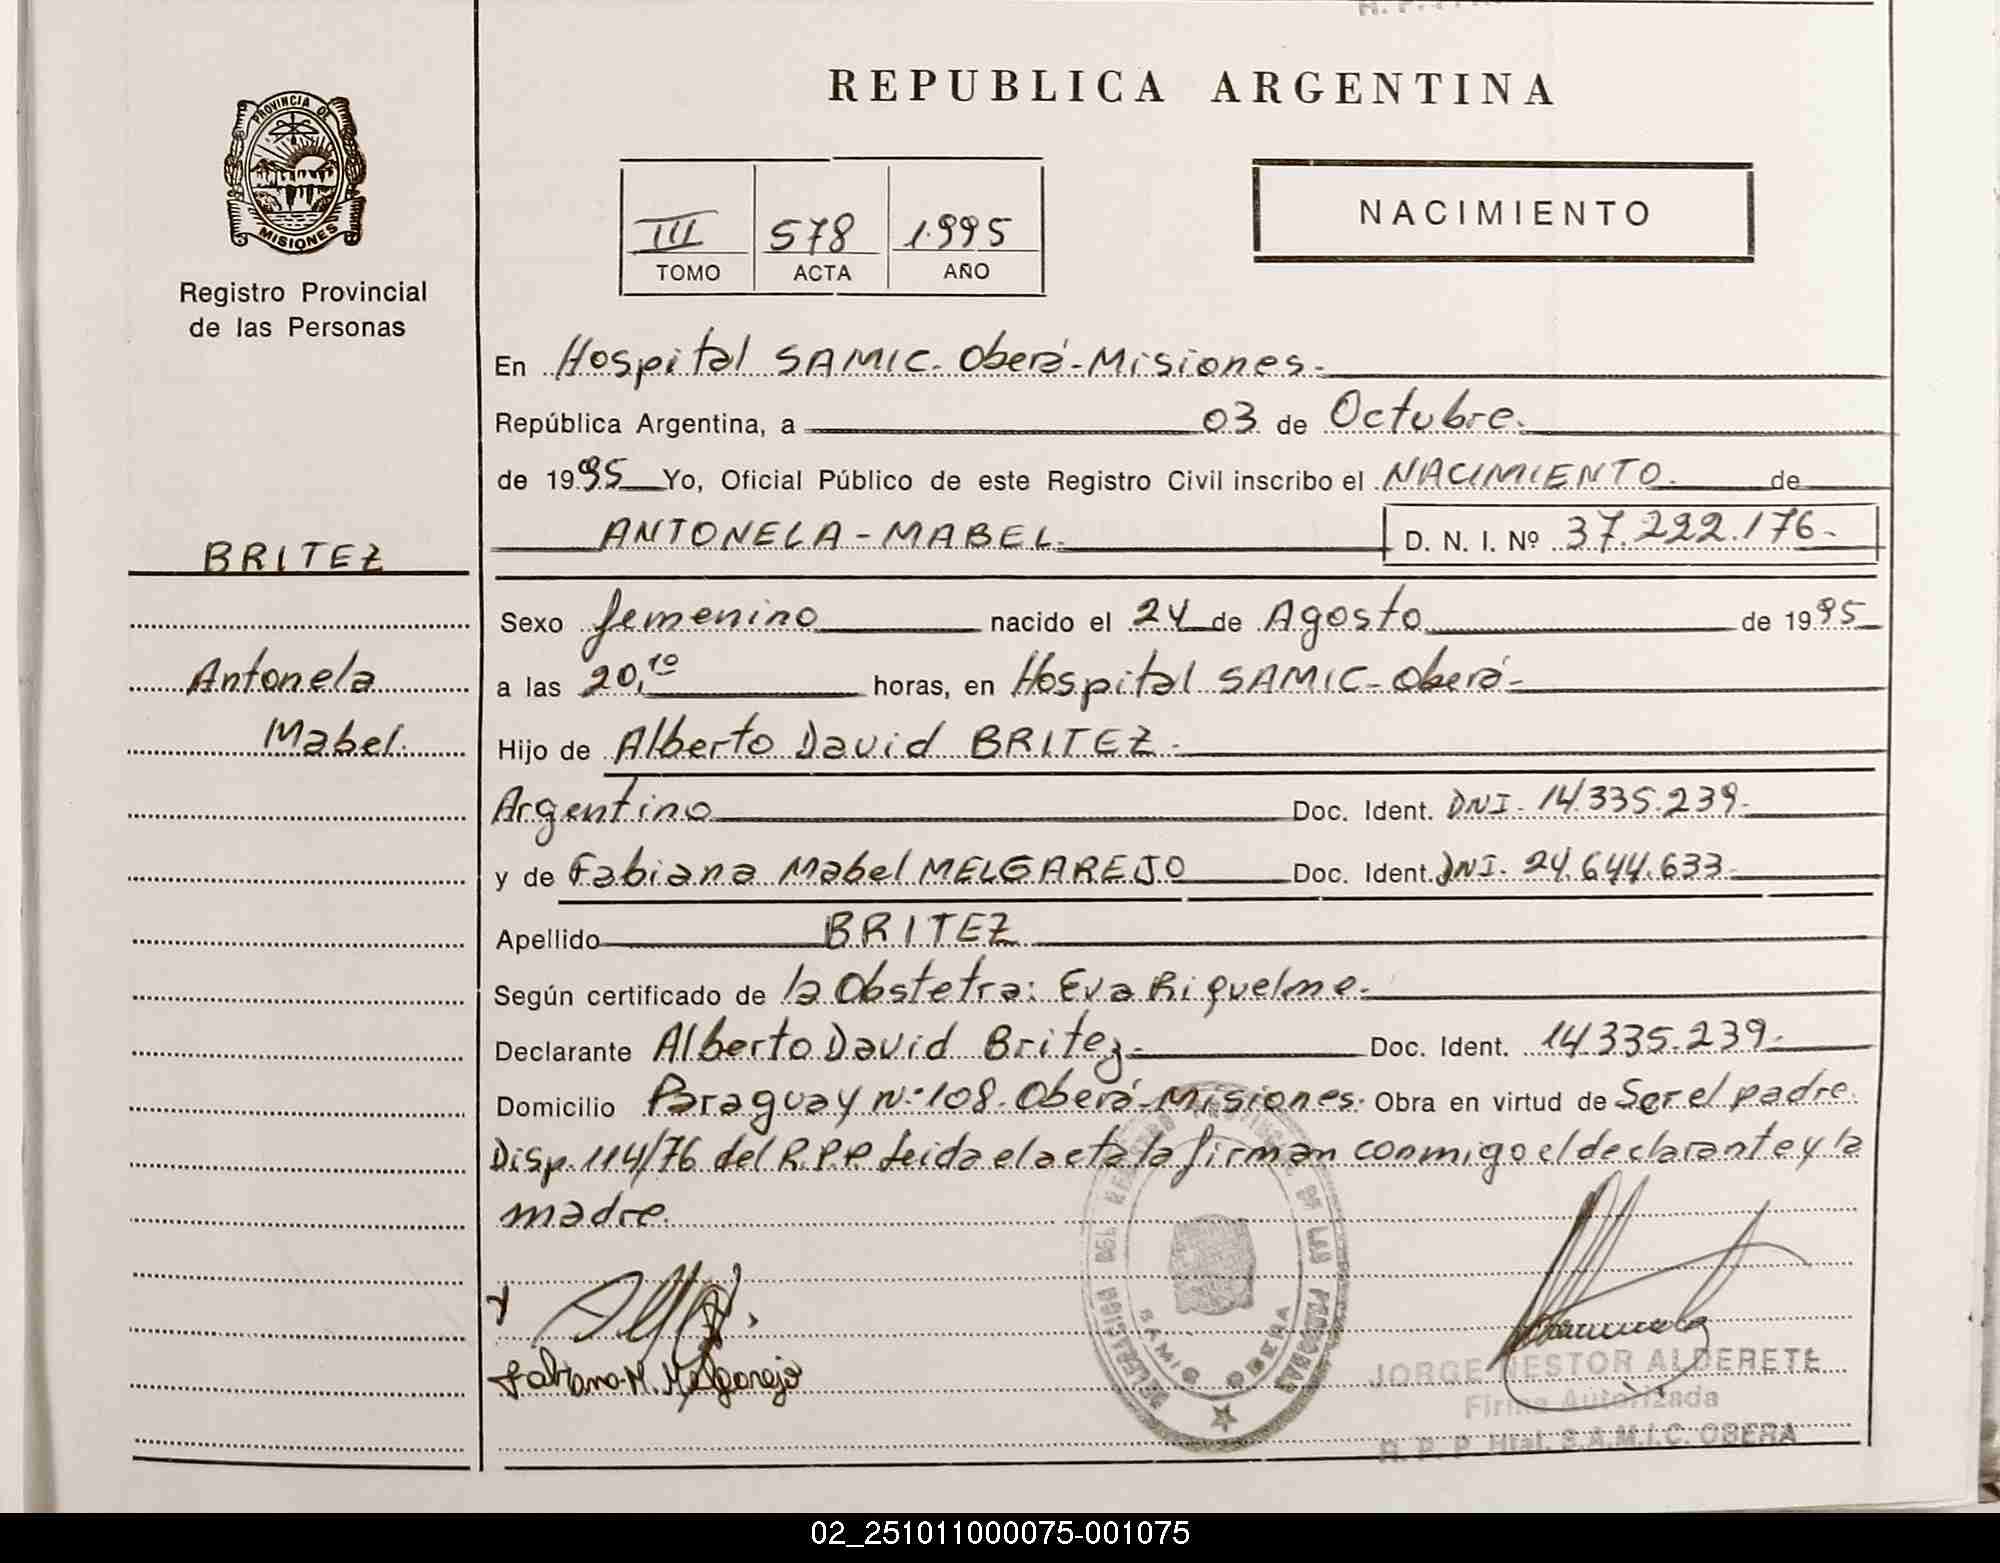 REPUBLICA ARGENTINA
PROVINCIA DE
MISIONES
Registro Provincial
de las Personas
III 578 1.995
TOMO ACTA AÑO
NACIMIENTO
En Hospital SAMIC- Oberá-Misiones.-
República Argentina, a 03 de Octubre.
de 1995 Yo, Oficial Público de este Registro Civil inscribo el NACIMIENTO. de
ANTONELA-MABEL. D. N. I. Nº 37.222.176-
BRITEZ
Sexo femenino nacido el 24 de Agosto de 1995
Antonela
a las 20,10 horas, en Hospital SAMIC-Oberá-
Mabel.
Hijo de Alberto David BRITEZ.-
Argentino Doc. Ident. DNI- 14.335.239-
y de Fabiana Mabel MELGAREJO Doc. Ident. DNI- 24.644.633-
Apellido BRITEZ
Según certificado de la Obstetra: Eva Riquelme.
Declarante Alberto David Britez- Doc. Ident. 14.335.239-
Domicilio Paraguay Nº108- Oberá-Misiones. Obra en virtud de Ser el padre.
Disp. 114/76 del R.P.P. Leida el acta la firman conmigo el declarante y la
madre.
Fabiana M. Melgarejo
DELEGACION DEL REGISTRO PROVINCIAL DE LAS PERSONAS
SAMIC OBERA
JORGE NESTOR ALDERETE
Firma Autorizada
R. P. P. Htal. S.A.M.I.C. OBERA
02_251011000075-001075